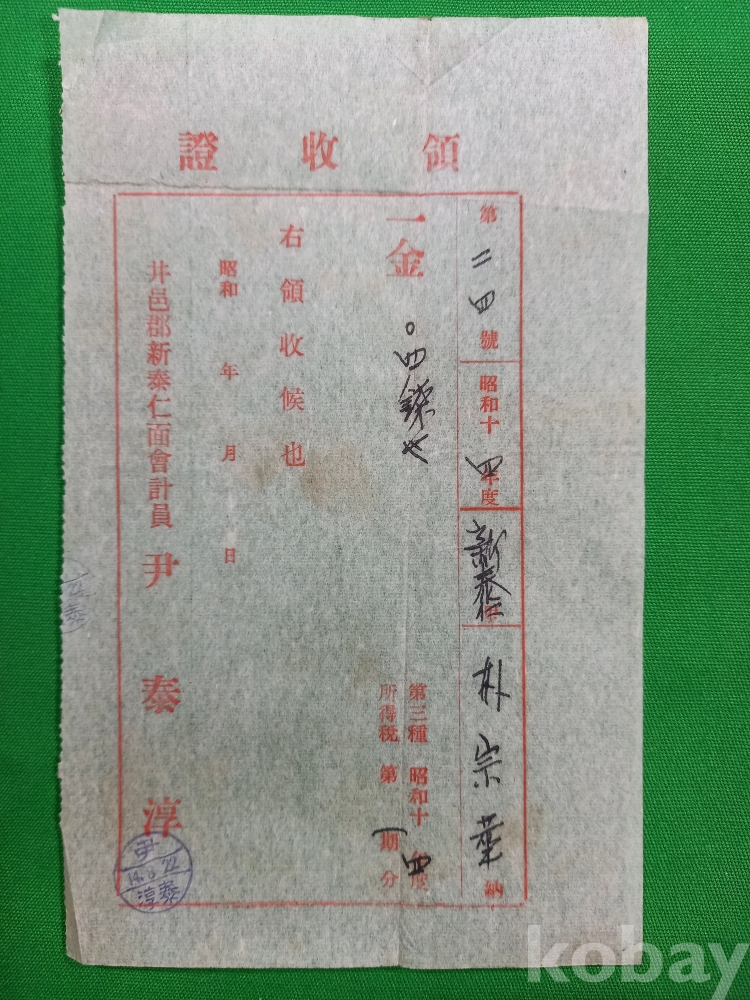 領收證
第二四號 昭和十四年度 新泰仁 朴宗 納
一金 〇四錢也
第三種 昭和十四年度
所得稅 第一期分
右領收候也
昭和 年 月 日
井邑郡新泰仁面會計員 尹泰淳
尹
22
淳泰
kobay